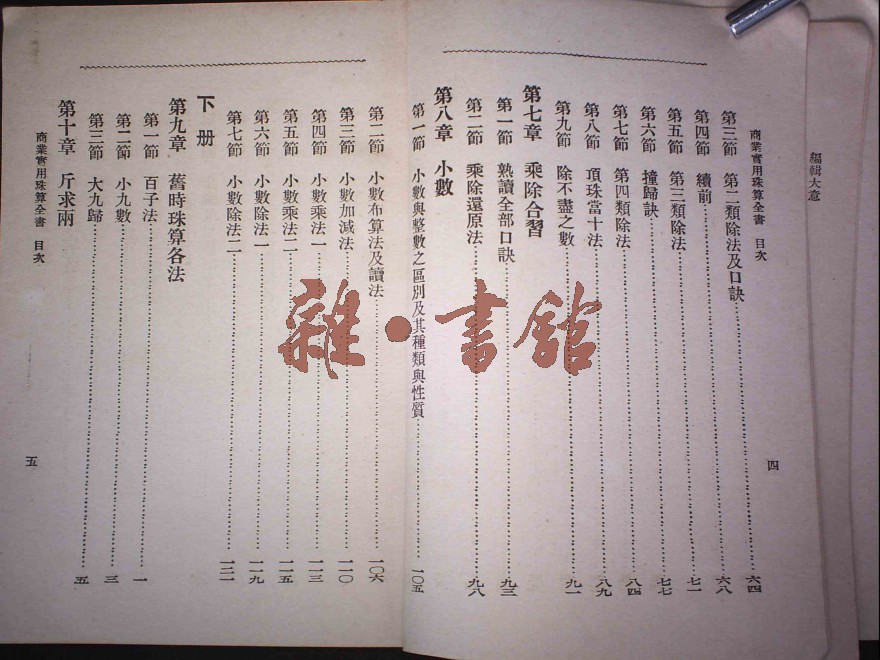 編輯大意
商業實用珠算全書 目次
四
第三節 第二類除法及口訣 六四
第四節 續前 六八
第五節 第三類除法 七一
第六節 撞歸訣 七七
第七節 第四類除法 八四
第八節 頂珠當十法 八九
第九節 除不盡之數 九一
第七章 乘除合習
第一節 熟讀全部口訣 九三
第二節 乘除還原法 九八
第八章 小數
第一節 小數與整數之區別及其種類與性質 一〇五
第二節 小數布算法及讀法 一〇六
第三節 小數加減法 一一〇
第四節 小數乘法一 一一三
第五節 小數乘法二 一一五
第六節 小數除法一 一一九
第七節 小數除法二 一二一
下册
第九章 舊時珠算各法
第一節 百子法 一
第二節 小九數 三
第三節 大九歸 五
第十章 斤求兩
商業實用珠算全書 目次
五
雜·書館